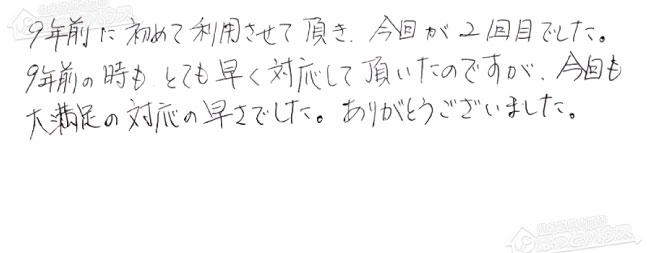 9年前に初めて利用させて頂き、今回が2回目でした。
9年前の時も、とても早く対応して頂いたのですが、今回も
大満足の対応の早さでした。ありがとうございました。